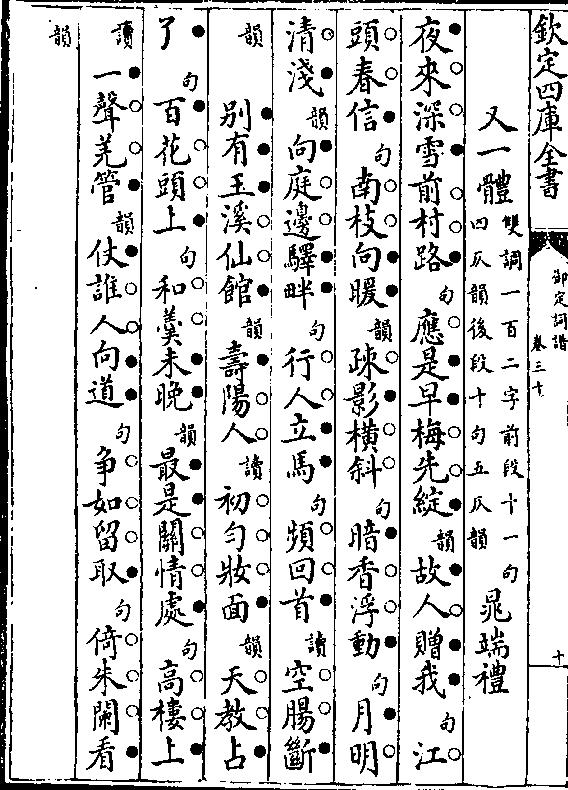 欽定四庫全書
御定詞譜
卷三十
十
又一體 雙調一百二字前段十一句四仄韻後段十句五仄韻 晁端禮
夜來深雪前村路句應是早梅先綻韻故人贈我句江
頭春信句南枝向暖韻疎影橫斜句暗香浮動句月明
清淺韻向庭邊驛畔句行人立馬句頻回首讀空腸斷
韻 别有玉溪仙館韻壽陽人讀初勻妝面韻天教占
了句百花頭上句和羹未晚韻最是關情處句高樓上
讀一聲羌管韻仗誰人向道句争如留取句倚朱闌看
韻